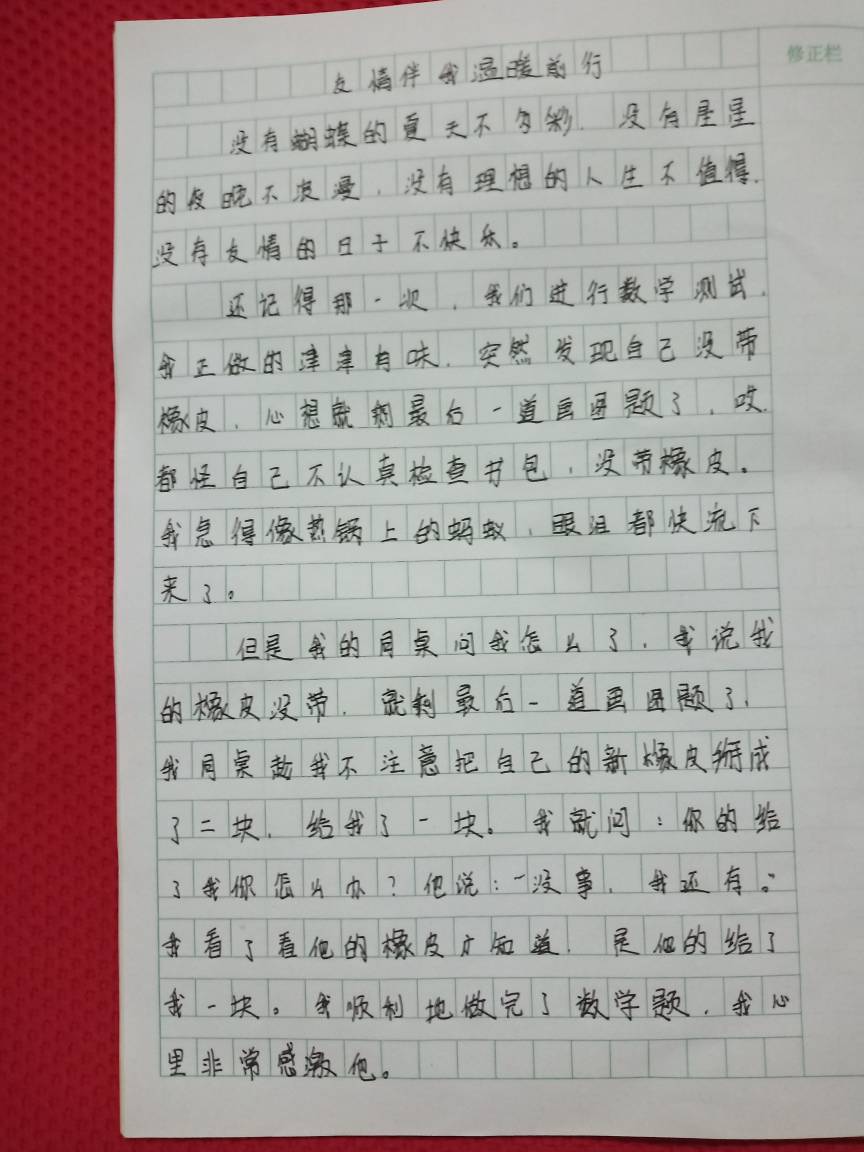 修正栏
友情伴我温暖前行
没有蝴蝶的夏天不多彩，没有星星
的夜晚不浪漫，没有理想的人生不值得，
没有友情的日子不快乐。
还记得那一次，我们进行数学测试，
我正做的津津有味，突然发现自己没带
橡皮，心想就剩最后一道画图题了，哎，
都怪自己不认真检查书包，没带橡皮。
我急得像热锅上的蚂蚁，眼泪都快流下
来了。
但是我的同桌问我怎么了，我说我
的橡皮没带，就剩最后一道画图题了，
我同桌趁我不注意把自己的新橡皮掰成
了二块，给我了一块。我就问：你的给
了我你怎么办？他说：“没事，我还有。”
我看了看他的橡皮才知道，是他的给了
我一块。我顺利地做完了数学题，我心
里非常感激他。